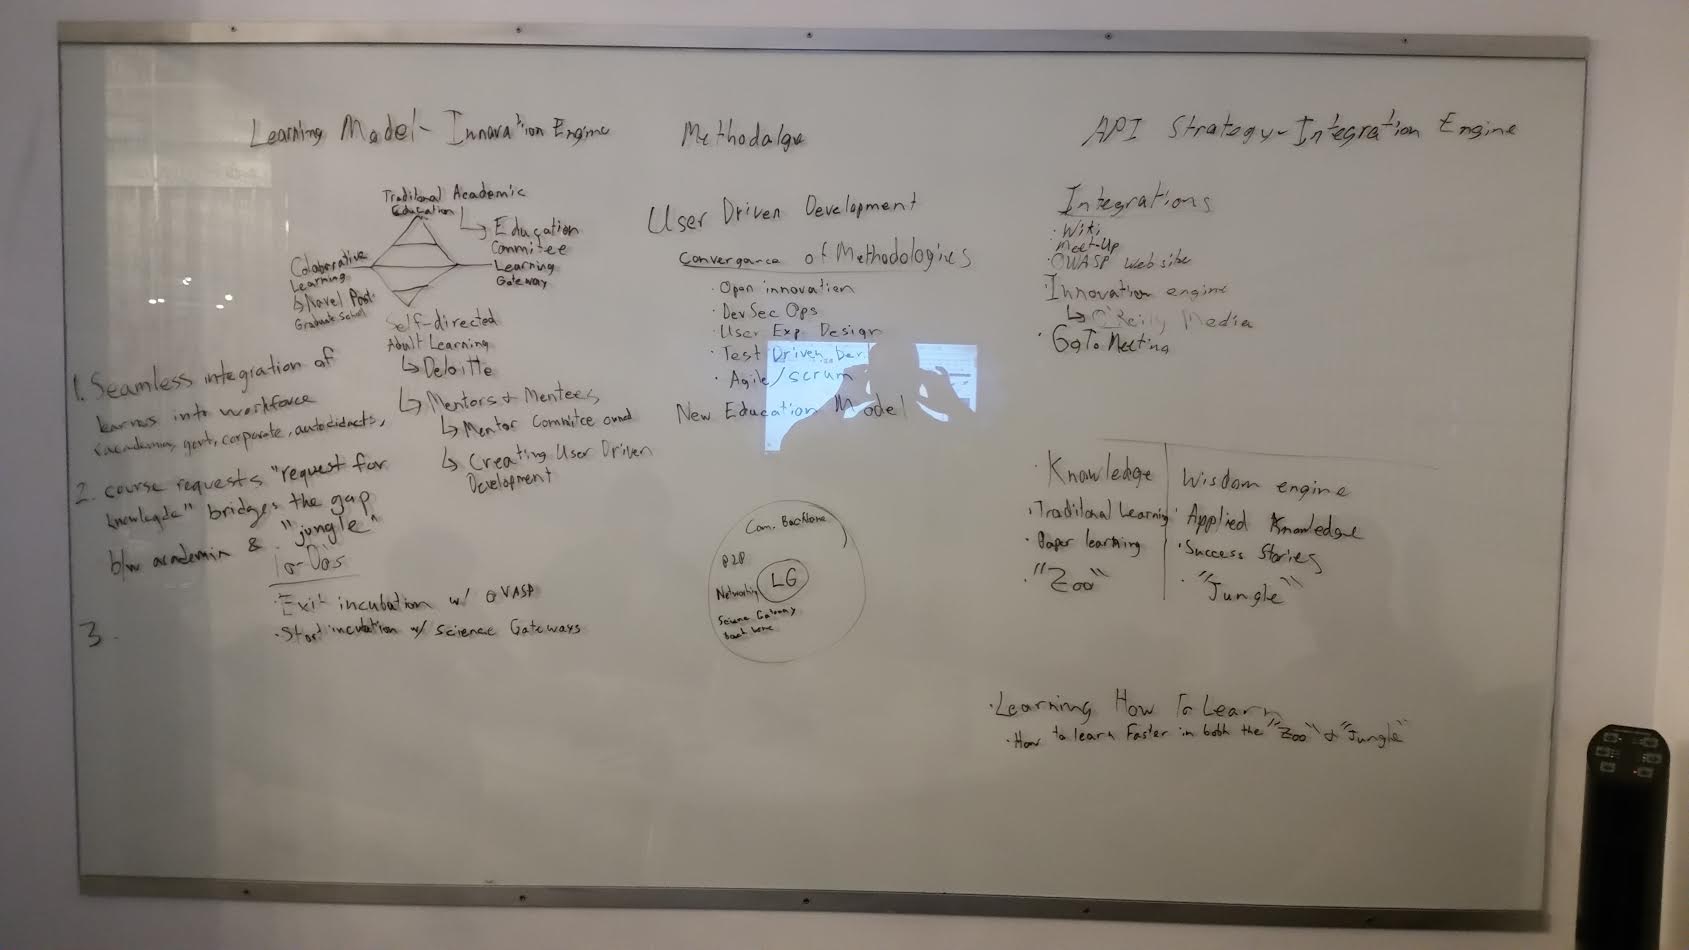 Learning Model - Innovation Engine
Traditional Academic
Education
↳ Education
Commitee
Learning
Gateway
Colaborative
Learning
↳ Navel Post
Graduate School
Self-directed
Adult Learning
↳ Deloitte
↳ Mentors + Mentees
↳ Mentor Commitee and
↳ Creating User Driven
Development
1. Seamless integration of
learners into workforce
(academia, govt, corporate, autodidacts,
2. course requests "request for
knowlegde" bridges the gap
b/w academia & "jungle"
To-Do's
· Exit incubation w/ OWASP
· Start incubation w/ Science Gateways
3.
Methodalge
User Driven Development
Convergance of Methodologies
· Open innovation
· DevSecOps
· User Exp Design
· Test Driven Dev.
· Agile/scrum
New Education Model
Com. Backbone
P2P
LG
Networking
Science Gateway
back bone
API Strategy - Integration Engine
Integrations
· Wiki
· Meet-Up
· OWASP website
Innovation engine
↳ O'Reily Media
· GoTo Meeting
· Knowledge
· Traditional Learning
· Paper learning
· "Zoo"
Wisdom engine
· Applied Knowledge
· Success Stories
· "Jungle"
· Learning How To Learn
· How to learn Faster in both the "Zoo" & "Jungle"